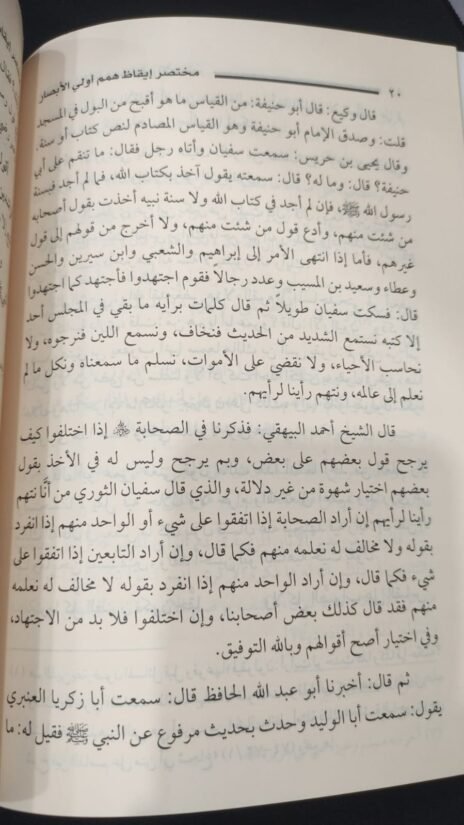 ٢٠ مختصر إيقاظ همم أولي الأبصار
قال وكيع: قال أبو حنيفة: من القياس ما هو أقبح من البول في المسجد
قلت: وصدق الإمام أبو حنيفة وهو القياس المصادم لنص كتاب أو سنة.
وقال يحيى بن حريس: سمعت سفيان وأتاه رجل فقال: ما تنقم على أبي
حنيفة؟ قال: وما له؟ قال: سمعته يقول آخذ بكتاب الله، فما لم أجد فبسنة
رسول الله ﷺ، فإن لم أجد في كتاب الله ولا سنة نبيه أخذت بقول أصحابه
من شئت منهم، وأدع قول من شئت منهم، ولا أخرج من قولهم إلى قول
غيرهم، فأما إذا انتهى الأمر إلى إبراهيم والشعبي وابن سيرين والحسن
وعطاء وسعيد بن المسيب وعدد رجالاً فقوم اجتهدوا فأجتهد كما اجتهدوا
قال: فسكت سفيان طويلاً ثم قال كلمات برأيه ما بقي في المجلس أحد
إلا كتبه نستمع الشديد من الحديث فنخاف، ونسمع اللين فنرجوه، ولا
نحاسب الأحياء، ولا نقضي على الأموات، نسلم ما سمعناه ونكل ما لم
نعلم إلى عالمه، ونتهم رأينا لرأيهم.
قال الشيخ أحمد البيهقي: فذكرنا في الصحابة ﷺ إذا اختلفوا كيف
يرجح قول بعضهم على بعض، وبم يرجح وليس له في الأخذ بقول
بعضهم اختيار شهوة من غير دلالة، والذي قال سفيان الثوري من أنَّا نتهم
رأينا لرأيهم إن أراد الصحابة إذا اتفقوا على شيء أو الواحد منهم إذا انفرد
بقوله ولا مخالف له نعلمه منهم فكما قال، وإن أراد التابعين إذا اتفقوا على
شيء فكما قال، وإن أراد الواحد منهم إذا انفرد بقوله لا مخالف له نعلمه
منهم فقد قال كذلك بعض أصحابنا، وإن اختلفوا فلا بد من الاجتهاد،
وفي اختيار أصح أقوالهم وبالله التوفيق.
ثم قال: أخبرنا أبو عبد الله الحافظ قال: سمعت أبا زكريا العنبري
يقول: سمعت أبا الوليد وحدث بحديث مرفوع عن النبي ﷺ فقيل له: ما